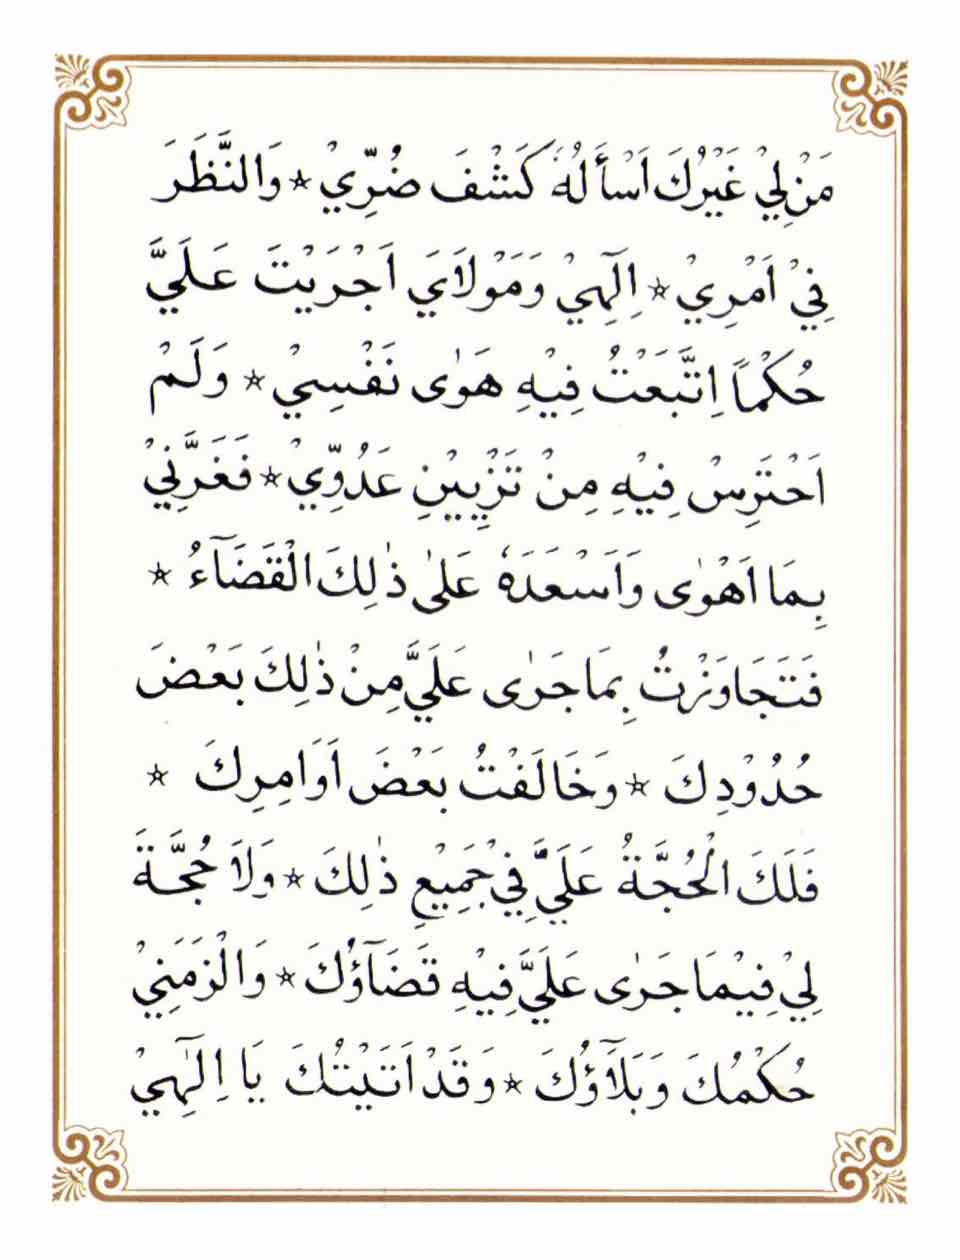 مَنْ لِيْ غَيْرُكَ اَسْأَلُهُ كَشْفَ ضُرِّيْ ٭ وَالنَّظَرَ
فِيْ اَمْرِيْ ٭ اِلٓهِيْ وَمَوْلَايَ اَجْرَيْتَ عَلَيَّ
حُكْمًا اِتَّبَعْتُ فِيْهِ هَوٰى نَفْسِيْ ٭ وَلَمْ
اَحْتَرِسْ فِيْهِ مِنْ تَزْيِيْنِ عَدُوِّيْ ٭ فَغَرَّنِيْ
بِمَا اَهْوٰى وَاَسْعَدَهٗ عَلٰى ذٰلِكَ الْقَضَآءُ ٭
فَتَجَاوَزْتُ بِمَا جَرٰى عَلَيَّ مِنْ ذٰلِكَ بَعْضَ
حُدُوْدِكَ ٭ وَخَالَفْتُ بَعْضَ اَوَامِرِكَ ٭
فَلَكَ الْحُجَّةُ عَلَيَّ فِيْ جَمِيْعِ ذٰلِكَ ٭ وَلَا حُجَّةَ
لِيْ فِيْمَا جَرٰى عَلَيَّ فِيْهِ قَضَآؤُكَ ٭ وَالْزَمَنِيْ
حُكْمُكَ وَبَلَآؤُكَ ٭ وَقَدْ اَتَيْتُكَ يَا اِلٰهِيْ